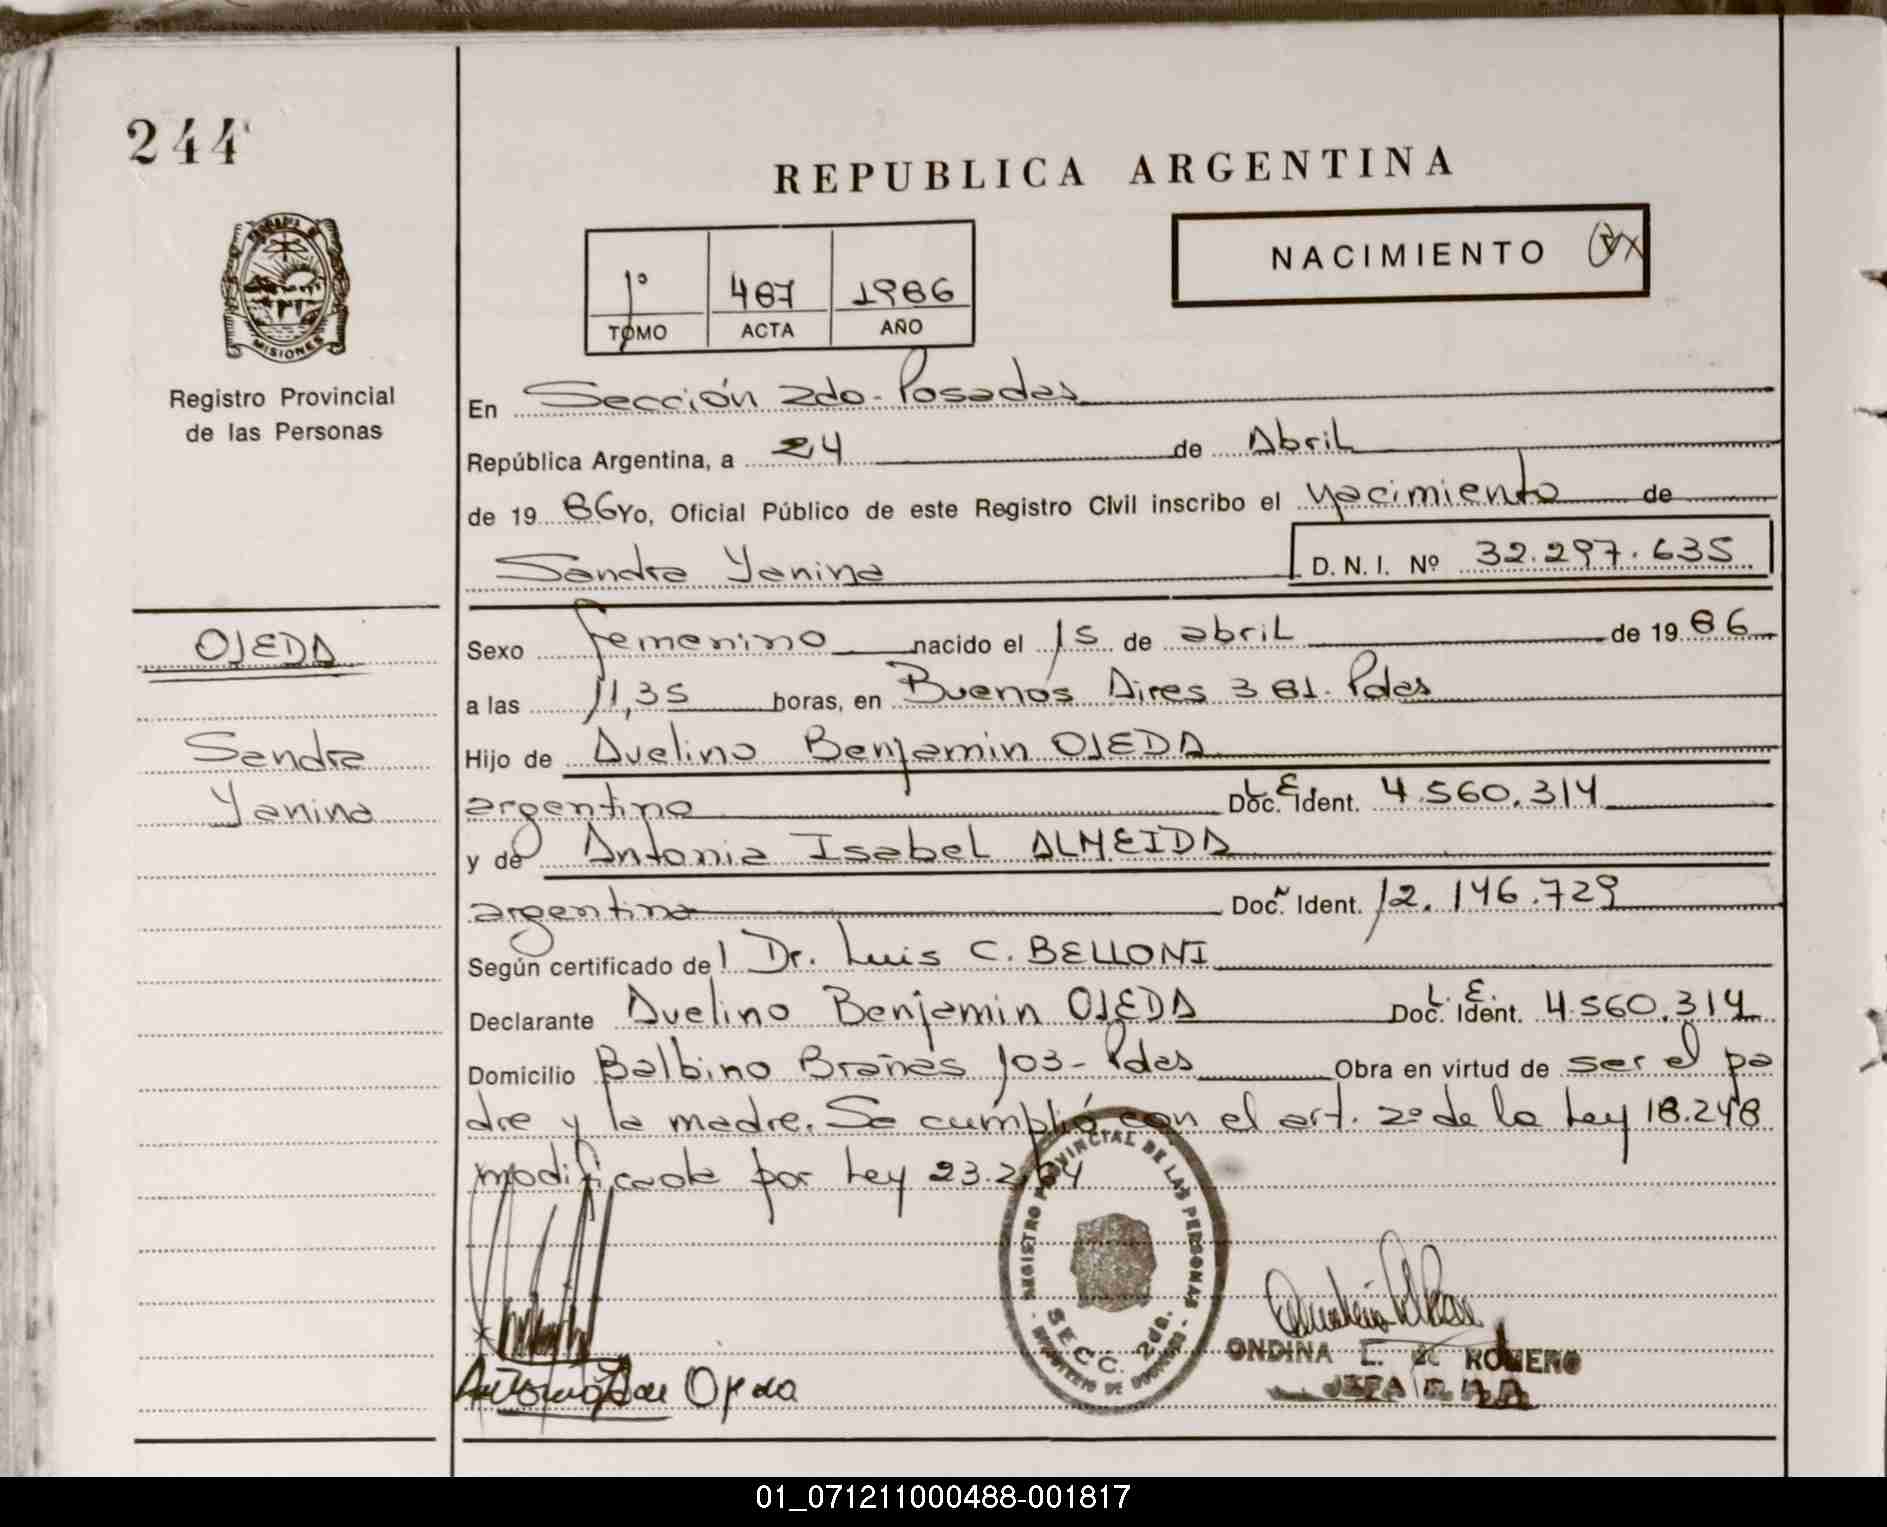 244
REPUBLICA ARGENTINA
NACIMIENTO
1º 487 1986
TOMO ACTA AÑO
MISIONES
Registro Provincial
de las Personas
En Sección 2da. Posadas
República Argentina, a 24 de Abril
de 19 86 Yo, Oficial Público de este Registro Civil inscribo el nacimiento de
Sandra Yanina D. N. I. Nº 32.297.635
OJEDA
Sandra
Yanina
Sexo femenino nacido el 15 de abril de 19 86
a las 11,35 horas, en Buenos Aires 381. Pdas
Hijo de Avelino Benjamin OJEDA
argentino Doc. Ident. L.E. 4.560.314
y de Antonia Isabel ALMEIDA
argentina Doc. Ident. 12.146.729
Según certificado del Dr. Luis C. BELLONI
Declarante Avelino Benjamin OJEDA Doc. Ident. L.E. 4.560.314
Domicilio Balbino Brañas 103- Pdas Obra en virtud de ser el pa
dre y la madre. Se cumplió con el art. 2º de la Ley 18.248
modificada por Ley 23.264
REGISTRO PROVINCIAL DE LAS PERSONAS
SECC. 2da.
ONDINA L. de ROMERO
JEFA
Ojeda
01_071211000488-001817